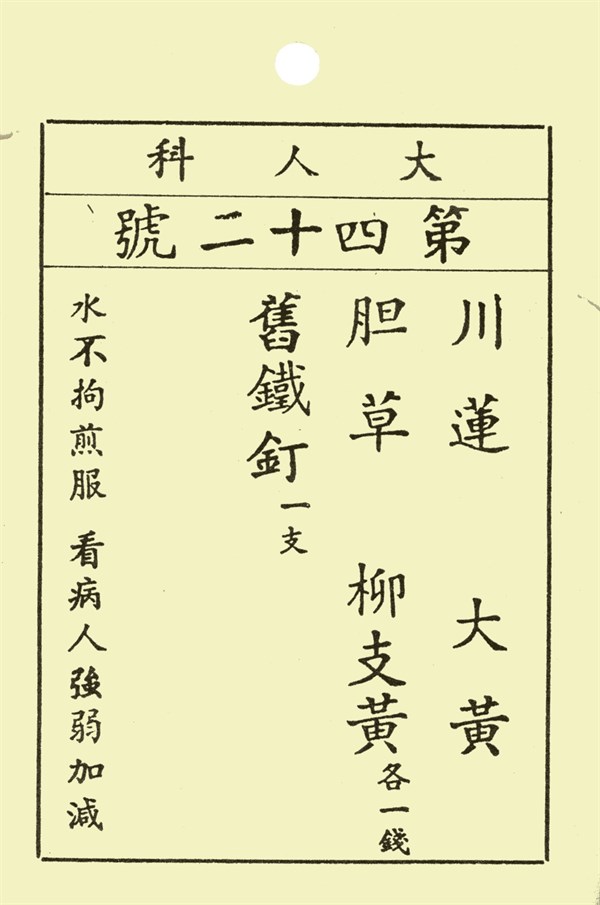 大人科
第四十二號
川蓮　大黃
胆草　柳支黃各一錢
舊鐵釘一支
水不拘煎服　看病人強弱加減